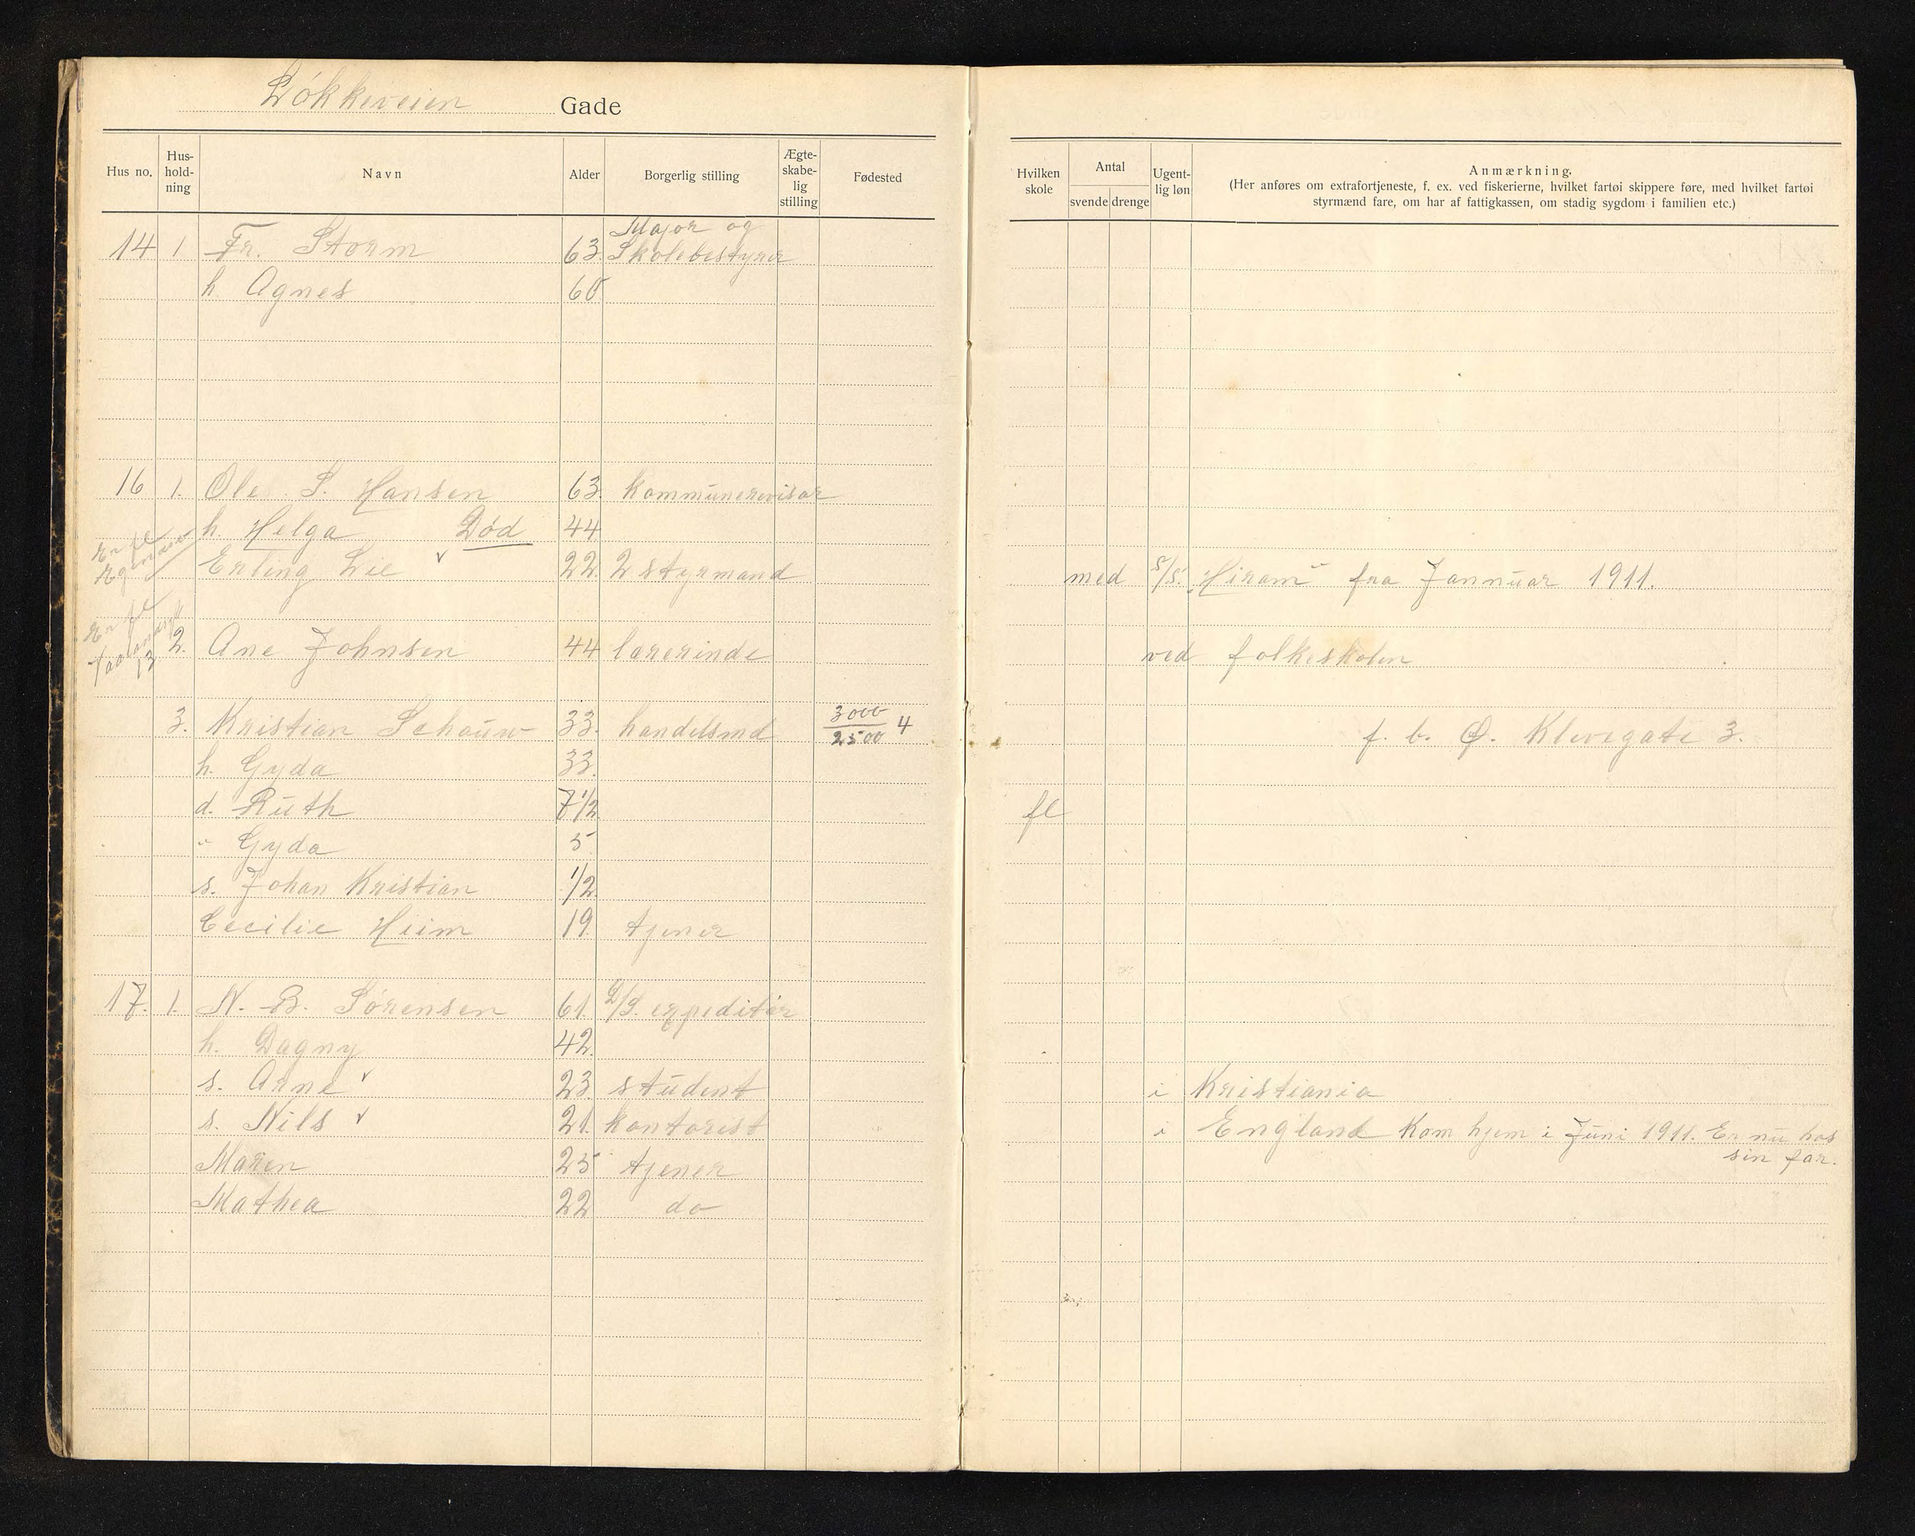 Løkkeveien Gade
Hus no. Hus-hold-ning Navn Alder Borgerlig stilling Ægte-skabe-lig stilling Fødested
Hvilken skole Antal svende drenge Ugent-lig løn Anmærkning.
(Her anføres om extrafortjeneste, f. ex. ved fiskerierne, hvilket fartøi skippere føre, med hvilket fartøi
styrmænd fare, om har af fattigkassen, om stadig sygdom i familien etc.)
14 1 Fr. Storm 63. Major og Skolebestyrer
h. Agnes 60
16 1. Ole S. Hansen 63. kommunerevisor
h. Helga Død 44
Er fl
Erling Lie v 22. 2 styrmand med s/s. "Hiram" fra Januar 1911.
Er fl
13
2. Ane Johnsen 44 lærerinde ved folkeskolen
3. Kristian Schouw 33. handelsmd 3000/2500 4 f. b. Ø. Klevegate 3.
h. Gyda 33.
d. Ruth 7 1/2 fl
" Gyda 5
s. Johan Kristian 1/2
Cecilie Heim 19. tjener
17. 1. N. B. Sørensen 61. D/S. expeditør
h. Dagny 42.
s. Arne v 23. student i Kristiania
s. Nils v 21. kontorist i England Kom hjem i Juni 1911. Er nu hos
sin far.
Maren 25 tjener
Mathea 22 do